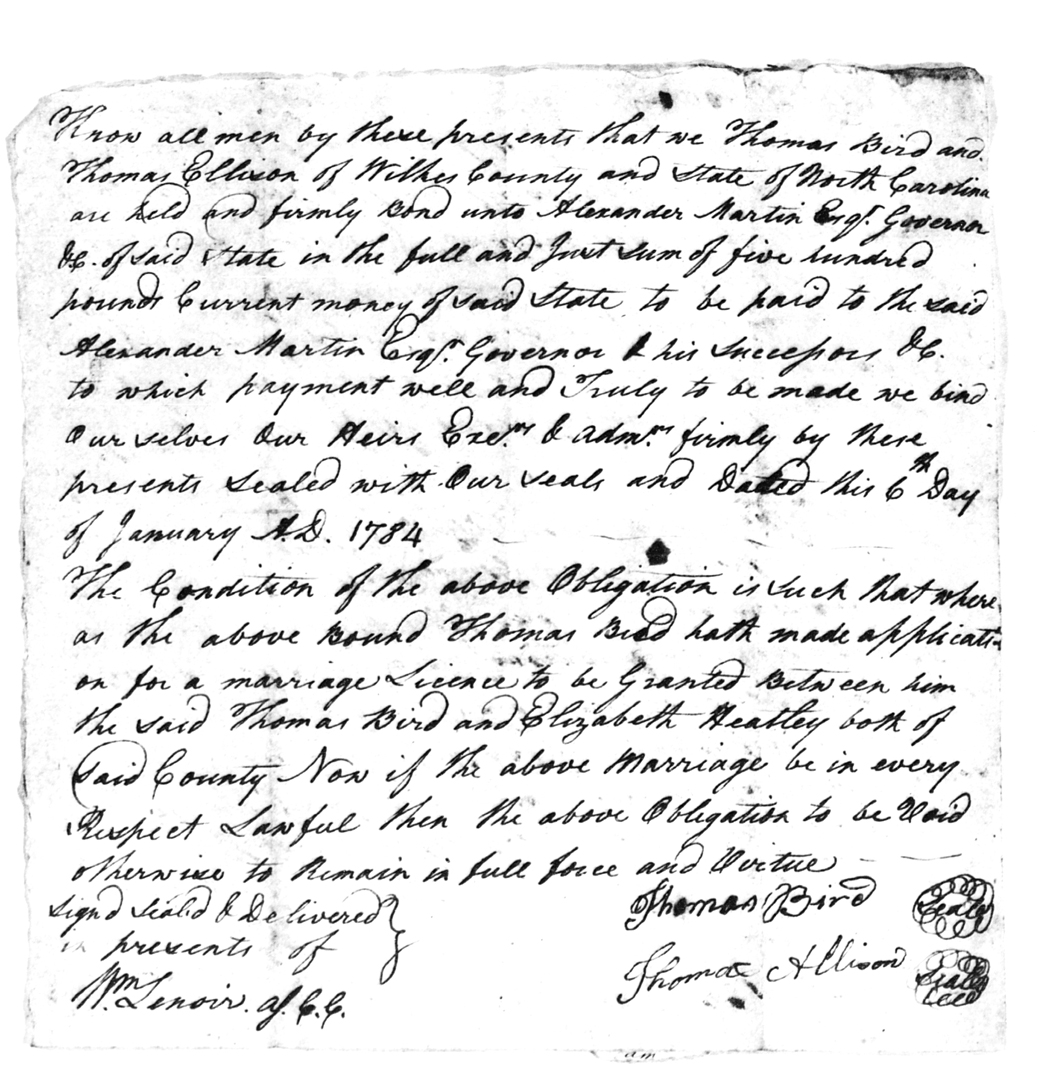 Know all men by these presents that we Thomas Bird and
Thomas Ellison of Wilkes County and State of North Carolina
are held and firmly Bond unto Alexander Martin Esqr. Governor
&C. of said State in the full and Just sum of five hundred
pounds Current money of said State to be paid to the said
Alexander Martin Esqr. Governor & his Successors &C.
to which payment well and Truly to be made we bind
Our selves Our Heirs Exe.rs & Adm.rs firmly by these
presents Sealed with Our seals and Dated this 6th Day
of January A.D. 1784
The Condition of the above Obligation is such that where
as the above Bound Thomas Bird hath made applicati-
on for a marriage Licence to be Granted Between him
the said Thomas Bird and Elizabeth Heatley both of
said County Now if the above Marriage be in every
Respect Lawful then the above Obligation to be Void
otherwise to Remain in full force and Virtue
Signd Seald & Delivered
in presents of
Thomas Bird Seal
Thomas Allison Seal
Wm. Lenoir. C.C.